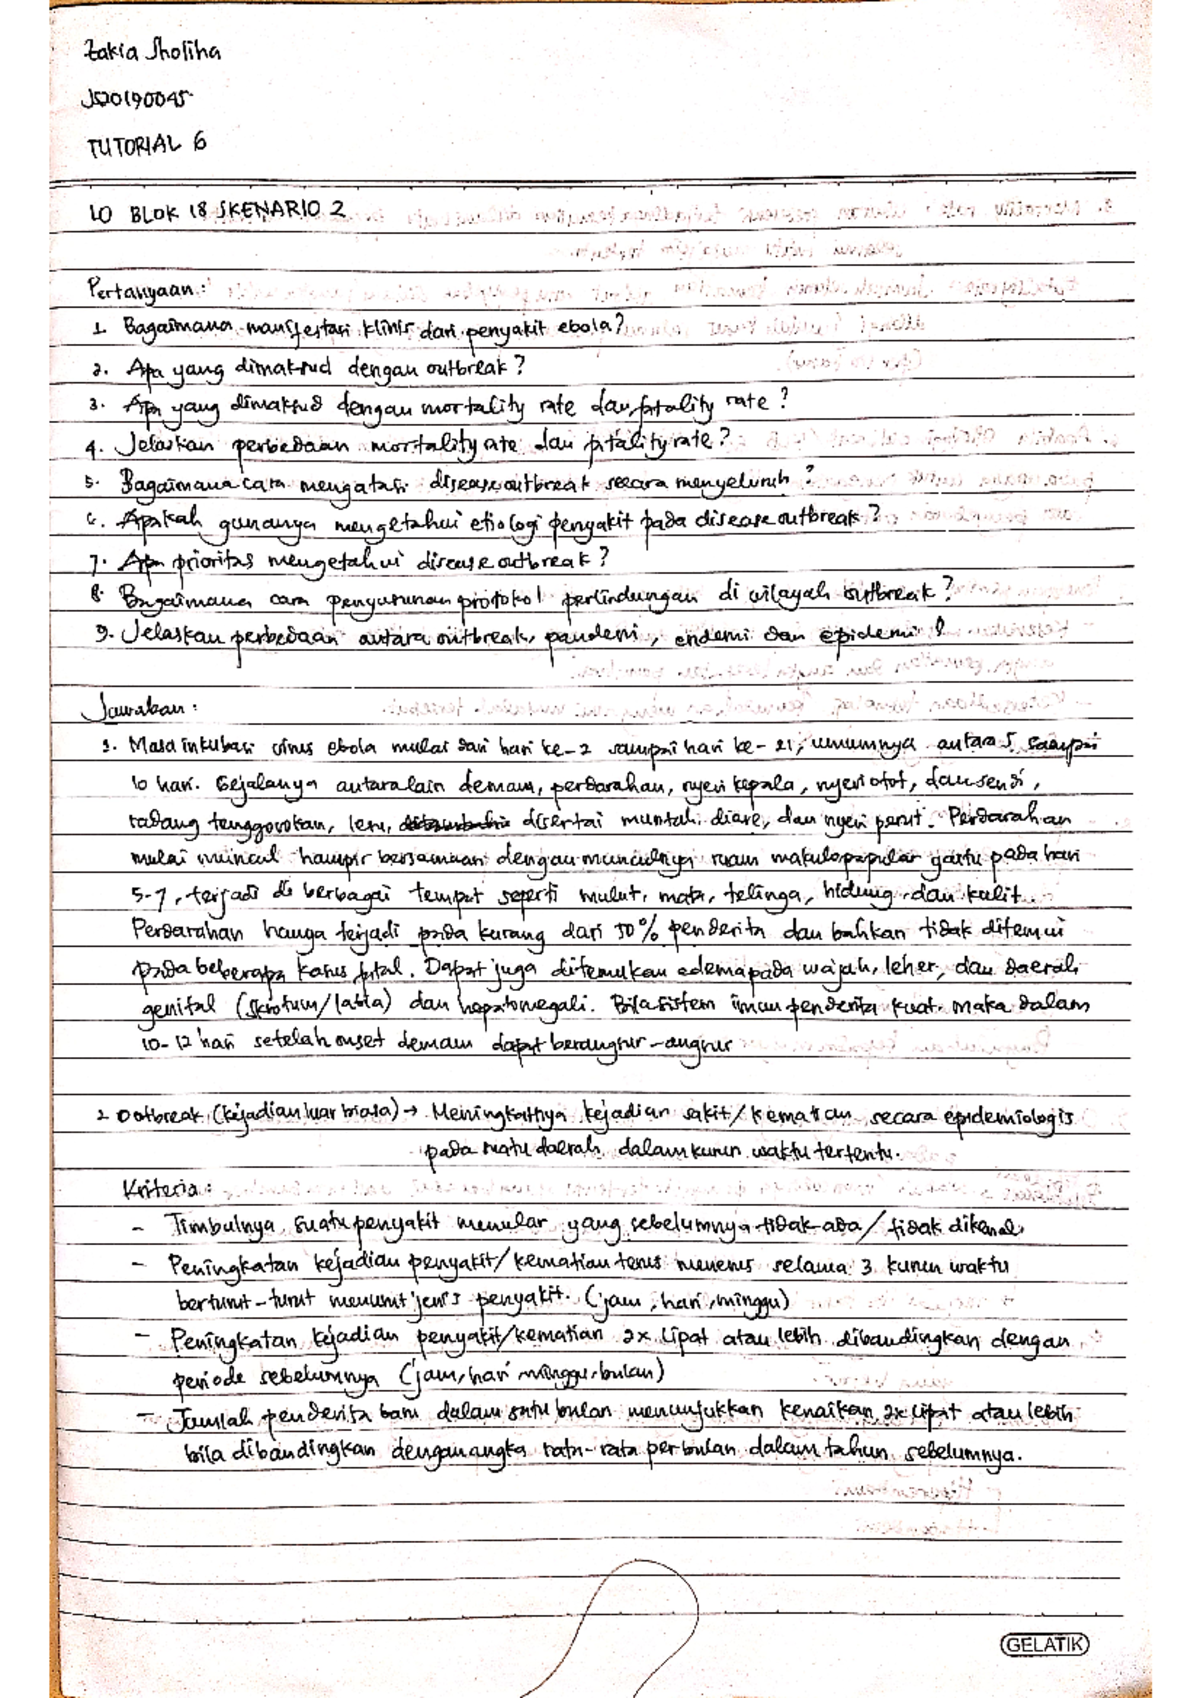 Zakia Sholiha
J520190045
TUTORIAL 6
LO BLOK 18 SKENARIO 2
Pertanyaan :
1. Bagaimana manifestasi klinis dari penyakit ebola?
2. Apa yang dimaksud dengan outbreak?
3. Apa yang dimaksud dengan mortality rate dan fatality rate?
4. Jelaskan perbedaan mortality rate dan fatality rate?
5. Bagaimana cara mengatasi disease outbreak secara menyeluruh?
6. Apakah gunanya mengetahui etiologi penyakit pada disease outbreak?
7. Apa prioritas mengetahui disease outbreak?
8. Bagaimana cara penyusunan protokol perlindungan di wilayah outbreak?
9. Jelaskan perbedaan antara outbreak, pandemi, endemi dan epidemi!
Jawaban :
1. Masa inkubasi virus ebola mulai dari hari ke-2 sampai hari ke-21, umumnya antara 5 sampai
10 hari. Gejalanya antara lain demam, perdarahan, nyeri kepala, nyeri otot, dan sendi,
radang tenggorokan, lesu, disertai muntah. diare, dan nyeri perut. Perdarahan
mulai muncul hampir bersamaan dengan munculnya ruam makulopapular yaitu pada hari
5-7, terjadi di berbagai tempat seperti mulut, mata, telinga, hidung, dan kulit
Perdarahan hanya terjadi pada kurang dari 50% penderita dan bahkan tidak ditemui
pada beberapa kasus fatal. Dapat juga ditemukan edema pada wajah, leher, dan daerah
genital (skrotum/labia) dan hepatomegali. Bila sistem imun penderita kuat. maka dalam
10-12 hari setelah onset demam dapat berangsur-angsur
2. Outbreak (kejadian luar biasa) → Meningkatnya kejadian sakit/kematian secara epidemiologis
pada suatu daerah dalam kurun waktu tertentu.
Kriteria :
- Timbulnya suatu penyakit menular yang sebelumnya tidak ada/tidak dikenal
- Peningkatan kejadian penyakit/kematian terus menerus selama 3 kurun waktu
berturut-turut menurut jenis penyakit. (jam, hari, minggu)
- Peningkatan kejadian penyakit/kematian 2x lipat atau lebih dibandingkan dengan
periode sebelumnya (jam, hari minggu, bulan)
- Jumlah penderita baru dalam satu bulan menunjukkan kenaikan 2x lipat atau lebih
bila dibandingkan dengan angka rata-rata per bulan dalam tahun sebelumnya.
GELATIK